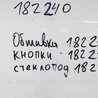 182240
Обшивка 1822
кнопки 1822
стеклопод 182